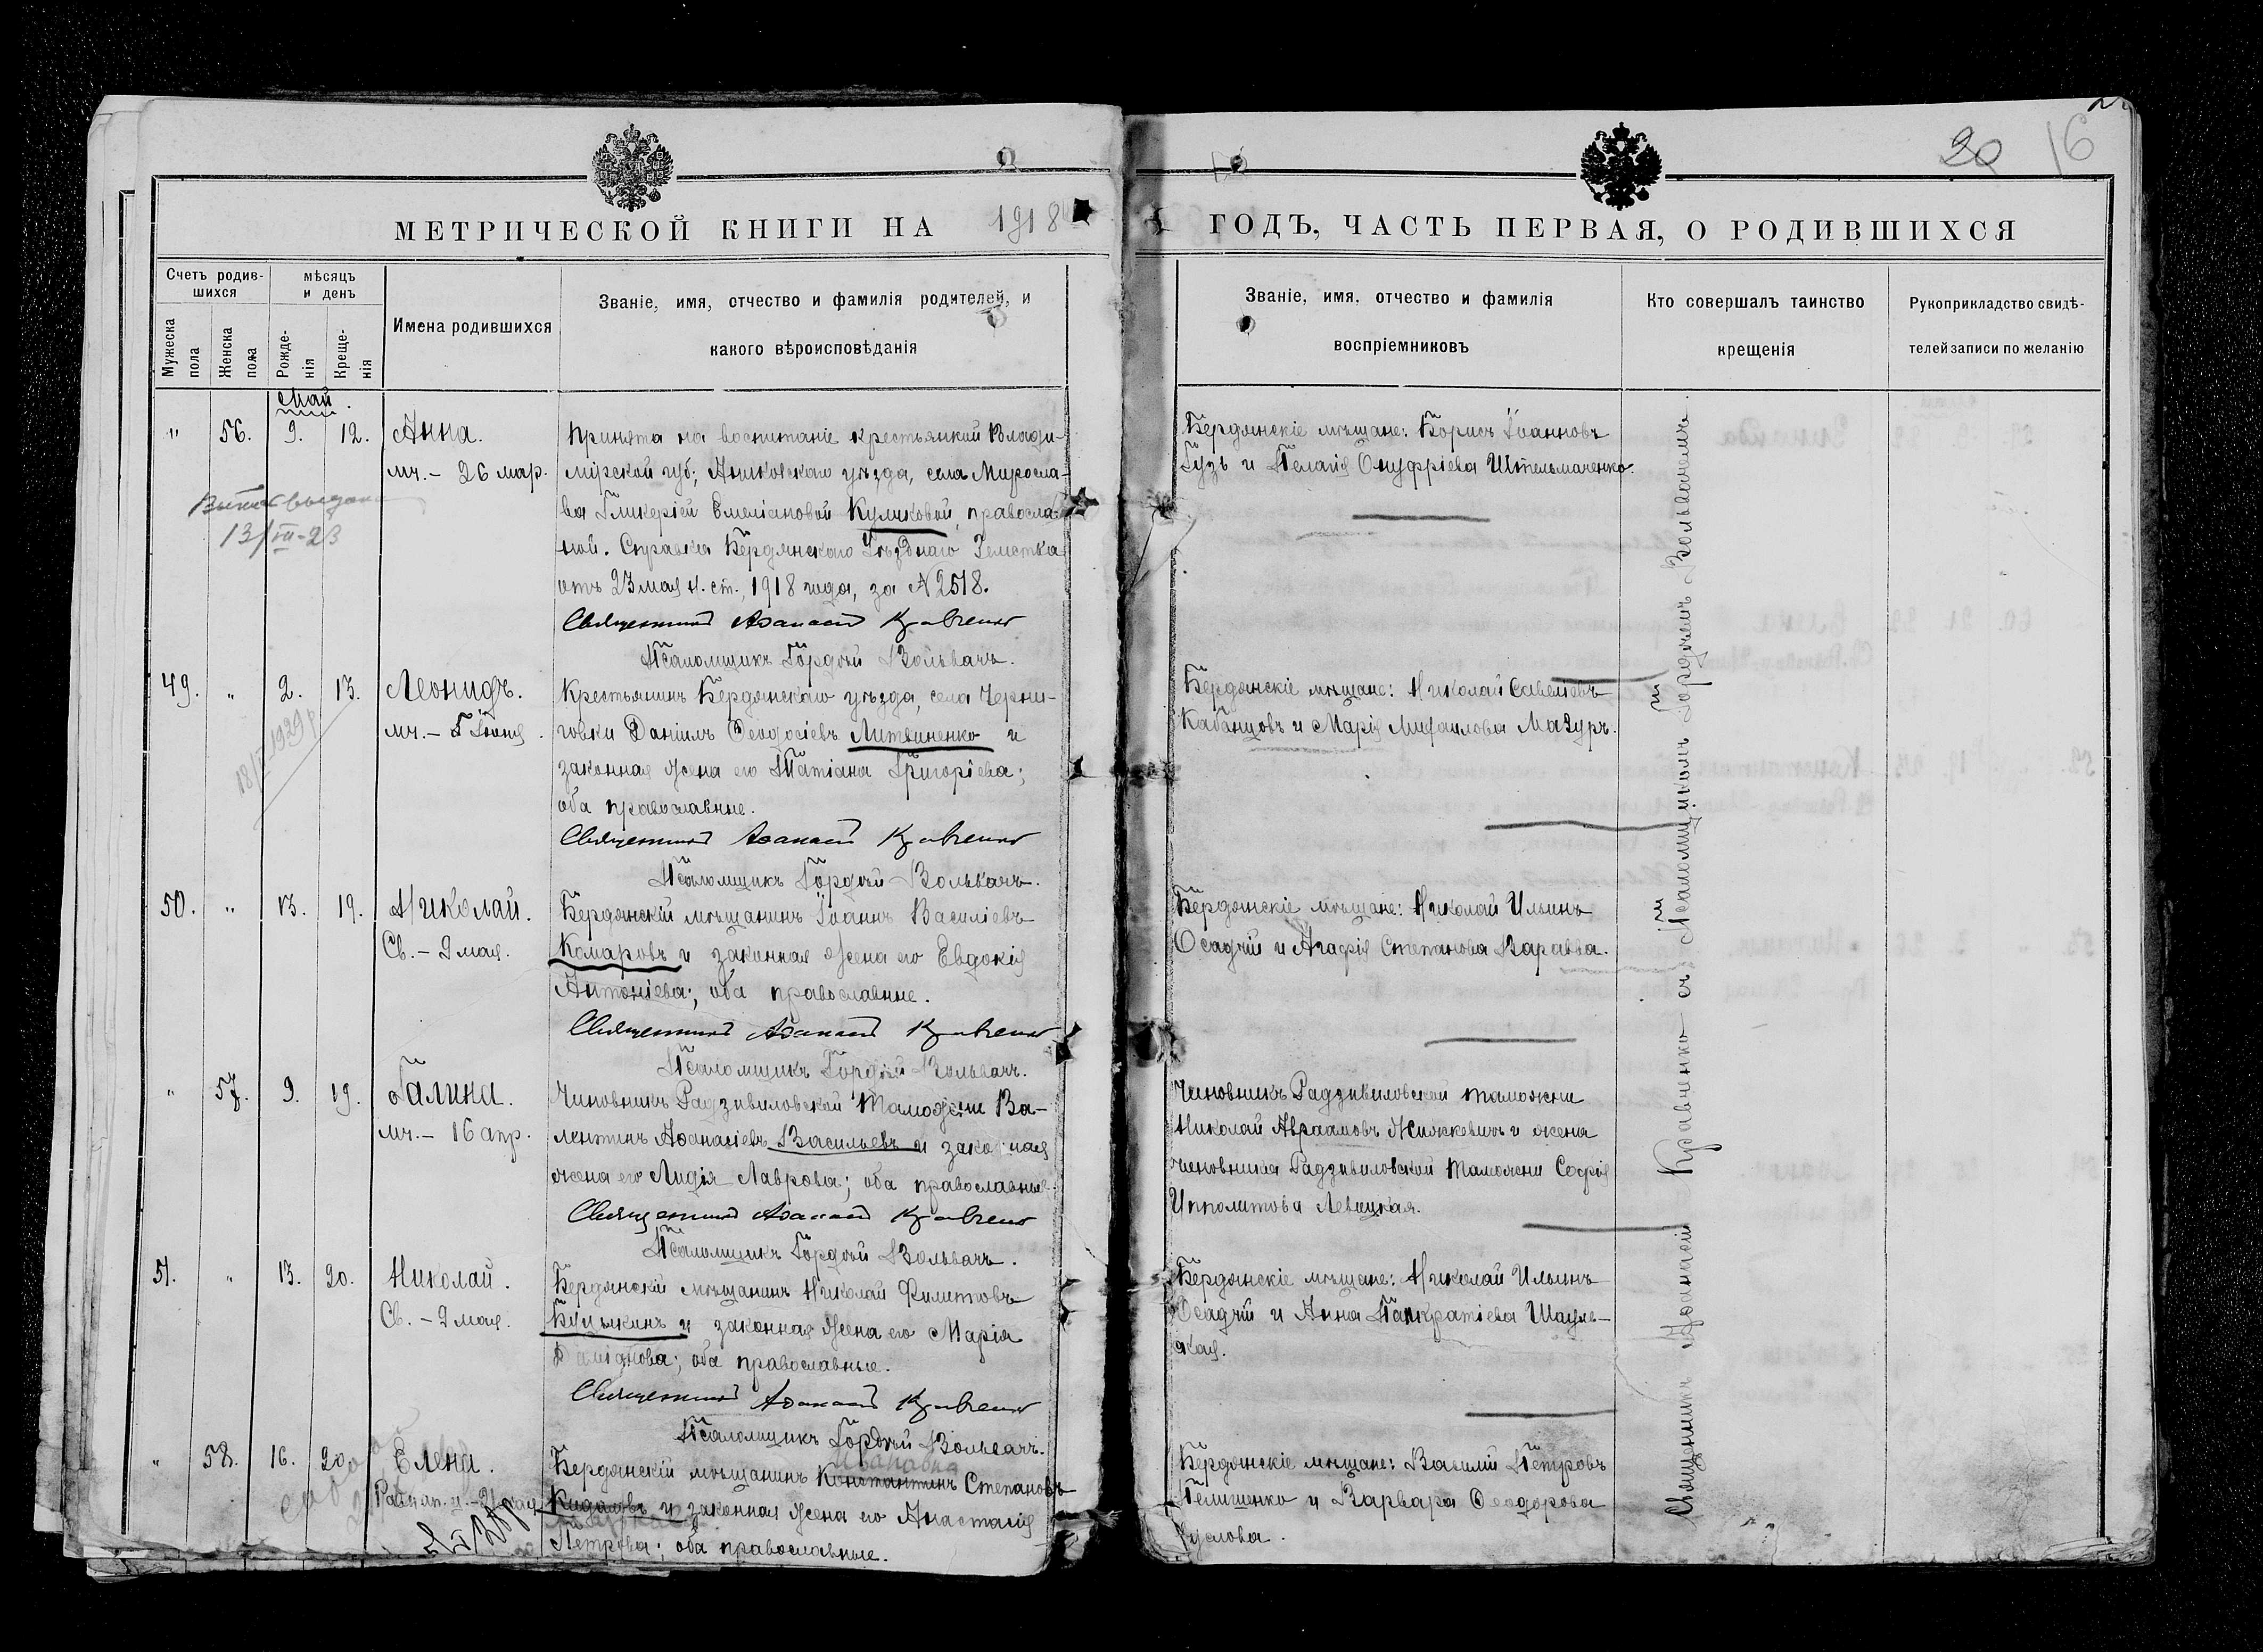 20 16
МЕТРИЧЕСКОЙ КНИГИ НА 1918
ГОДЪ, ЧАСТЬ ПЕРВАЯ, О РОДИВШИХСЯ
Счетъ родив-
шихся
Мужеска
пола
Женска
пола
мѣсяцъ
и день
Рожде-
нія
Креще-
нія
Имена родившихся
Званіе, имя, отчество и фамилія родителей, и
какого вѣроисповѣданія
Званіе, имя, отчество и фамилія
воспріемниковъ
Кто совершалъ таинство
крещенія
Рукоприкладство свидѣ-
телей записи по желанію
Май.
" 56. 9. 12. Анна.
мч. - 26 мар.
13/VII-23
Принята на воспитаніе крестьянкой Влади-
мірской губ;  уѣзда, села Миросла-
ва Гликеріей Емеліановой Куликовой, правосла-
ной. Справка Бердянскаго Уѣзднаго Земства
отъ 23 мая н. ст. 1918 года, за № 2518.
Священникъ Аѳанасій Кравченко
Псаломщикъ Гордѣй Вольвачъ.
Бердянскіе мѣщане: Борисъ Іоанновъ
Гузь и Пелагія Онуфріева Штельмаченко.
49. " 2. 13. Леонидъ.
мч. - 5 Іюня.
18/I-1929 г
Крестьянинъ Бердянскаго уѣзда, села Черни-
говки Даніилъ Ѳеодосіевъ Литвиненко и
законная жена его Татіана Григоріева;
оба православные.
Священникъ Аѳанасій Кравченко
Псаломщикъ Гордѣй Вольвачъ.
Бердянскіе мѣщане: Николай Савеліевъ
Кабанцовъ и Марія Михаилова Мазуръ.
50. " 13. 19. Николай.
Св. - 9 мая.
Бердянскій мѣщанинъ Іоаннъ Василіевъ
Комаровъ и законная жена его Евдокія
Антоніева; оба православные.
Священникъ Аѳанасій Кравченко
Псаломщикъ Гордѣй Вольвачъ.
Бердянскіе мѣщане: Николай Ильинъ
Осадчій и Агафія Степанова Варавва.
" 57. 9. 19. Галина.
мч. - 16 апр.
Чиновникъ Радзивиловской Таможни Ва-
лентинъ Аѳанасіевъ Васильевъ и законная
жена его Лидія Лаврова; оба православные.
Священникъ Аѳанасій Кравченко
Псаломщикъ Гордѣй Вольвачъ.
Чиновникъ Радзивиловской таможни
Николай Авраамовъ и жена
чиновника Радзивиловской Таможни Софія
Ипполитова Левицкая.
51. " 13. 20. Николай.
Св. - 9 мая.
Бердянскій мѣщанинъ Николай Филиповъ
Булыкинъ и законная жена его Марія
Даміанова; оба православные.
Священникъ Аѳанасій Кравченко
Псаломщикъ Гордѣй Вольвачъ.
Бердянскіе мѣщане: Николай Ильинъ
Осадчій и Анна Панкратіева
ская.
" 58. 16. 20. Елена.
Равноап. ц. - 21 мая
Бердянскій мѣщанинъ Константинъ Степановъ
и законная жена его Анастасія
Петрова; оба православные.
Бердянскіе мѣщане: Василій Петровъ
Пелишенко и Варвара Ѳеодорова
Священникъ Аѳанасій Кравченко съ Псаломщикомъ Гордѣемъ Вольвачемъ.